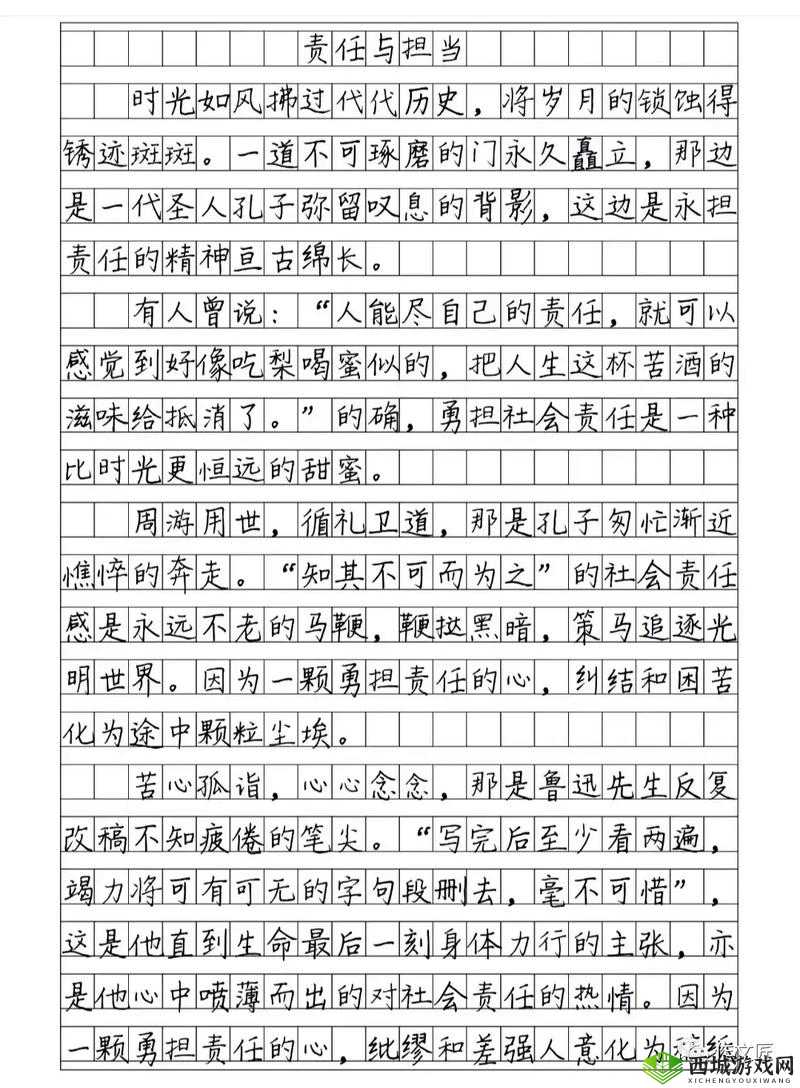 责任与担当
时光如风拂过代代历史，将岁月的锁蚀得
锈迹斑斑。一道不可琢磨的门永久矗立，那边
是一代圣人孔子弥留叹息的背影，这边是永担
责任的精神亘古绵长。
有人曾说：“人能尽自己的责任，就可以
感觉到好像吃梨喝蜜似的，把人生这杯苦酒的
滋味给抵消了。”的确，勇担社会责任是一种
比时光更恒远的甜蜜。
周游用世，循礼卫道，那是孔子匆忙渐近
憔悴的奔走。“知其不可而为之”的社会责任
感是永远不老的马鞭，鞭挞黑暗，策马追逐光
明世界。因为一颗勇担责任的心，纠结和困苦
化为途中颗粒尘埃。
苦心孤诣，心心念念，那是鲁迅先生反复
改稿不知疲倦的笔尖。“写完后至少看两遍，
竭力将可有可无的字句段删去，毫不可惜”，
这是他直到生命最后一刻身体力行的主张，亦
是他心中喷薄而出的对社会责任的热情。因为
一颗勇担责任的心，纰缪和差强人意化为
西城游戏网
XICHENGYOUXIWANG